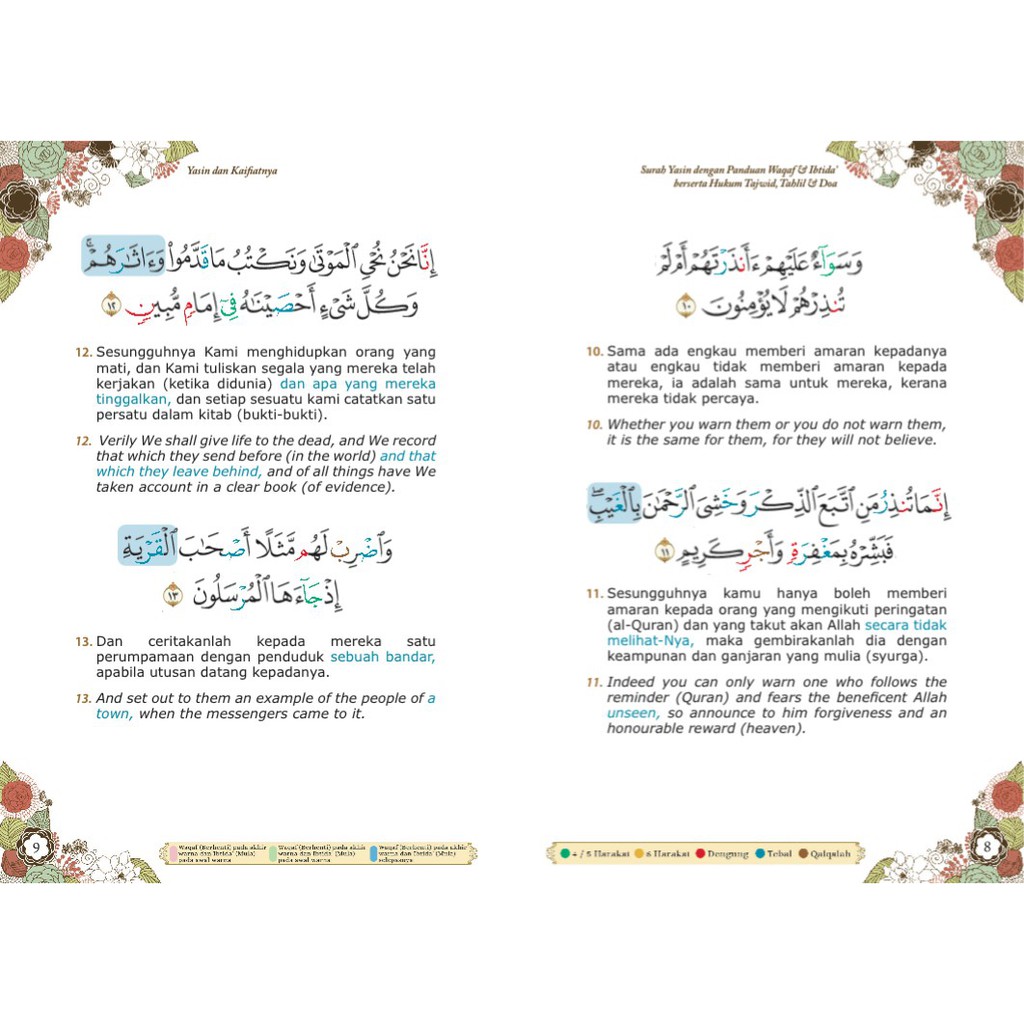 Surah Yasin dengan Panduan Waqaf & Ibtida'
berserta Hukum Tajwid, Tahlil & Doa
وَسَوَآءٌ عَلَيْهِمْ ءَأَنذَرْتَهُمْ أَمْ لَمْ
تُنذِرْهُمْ لَا يُؤْمِنُونَ ١٠
10. Sama ada engkau memberi amaran kepadanya
atau engkau tidak memberi amaran kepada
mereka, ia adalah sama untuk mereka, kerana
mereka tidak percaya.
10. Whether you warn them or you do not warn them,
it is the same for them, for they will not believe.
إِنَّمَا تُنذِرُ مَنِ ٱتَّبَعَ ٱلذِّكْرَ وَخَشِىَ ٱلرَّحْمَٰنَ بِٱلْغَيْبِ ۖ
فَبَشِّرْهُ بِمَغْفِرَةٍ وَأَجْرٍ كَرِيمٍ ١١
11. Sesungguhnya kamu hanya boleh memberi
amaran kepada orang yang mengikuti peringatan
(al-Quran) dan yang takut akan Allah secara tidak
melihat-Nya, maka gembirakanlah dia dengan
keampunan dan ganjaran yang mulia (syurga).
11. Indeed you can only warn one who follows the
reminder (Quran) and fears the beneficent Allah
unseen, so announce to him forgiveness and an
honourable reward (heaven).
4 / 5 Harakat 6 Harakat Dengung Tebal Qalqalah
8
Yasin dan Kaifiatnya
إِنَّا نَحْنُ نُحْىِ ٱلْمَوْتَىٰ وَنَكْتُبُ مَا قَدَّمُوا۟ وَءَاثَٰرَهُمْ ۚ
وَكُلَّ شَىْءٍ أَحْصَيْنَٰهُ فِىٓ إِمَامٍ مُّبِينٍ ١٢
12. Sesungguhnya Kami menghidupkan orang yang
mati, dan Kami tuliskan segala yang mereka telah
kerjakan (ketika didunia) dan apa yang mereka
tinggalkan, dan setiap sesuatu kami catatkan satu
persatu dalam kitab (bukti-bukti).
12. Verily We shall give life to the dead, and We record
that which they send before (in the world) and that
which they leave behind, and of all things have We
taken account in a clear book (of evidence).
وَٱضْرِبْ لَهُم مَّثَلًا أَصْحَٰبَ ٱلْقَرْيَةِ
إِذْ جَآءَهَا ٱلْمُرْسَلُونَ ١٣
13. Dan ceritakanlah kepada mereka satu
perumpamaan dengan penduduk sebuah bandar,
apabila utusan datang kepadanya.
13. And set out to them an example of the people of a
town, when the messengers came to it.
9
Waqaf (Berhenti) pada akhir
warna dan Ibtida' (Mula)
pada awal warna
Waqaf (Berhenti) pada akhir
warna dan Ibtida' (Mula)
pada awal warna
Waqaf (Berhenti) pada akhir
warna dan Ibtida' (Mula)
selepasnya